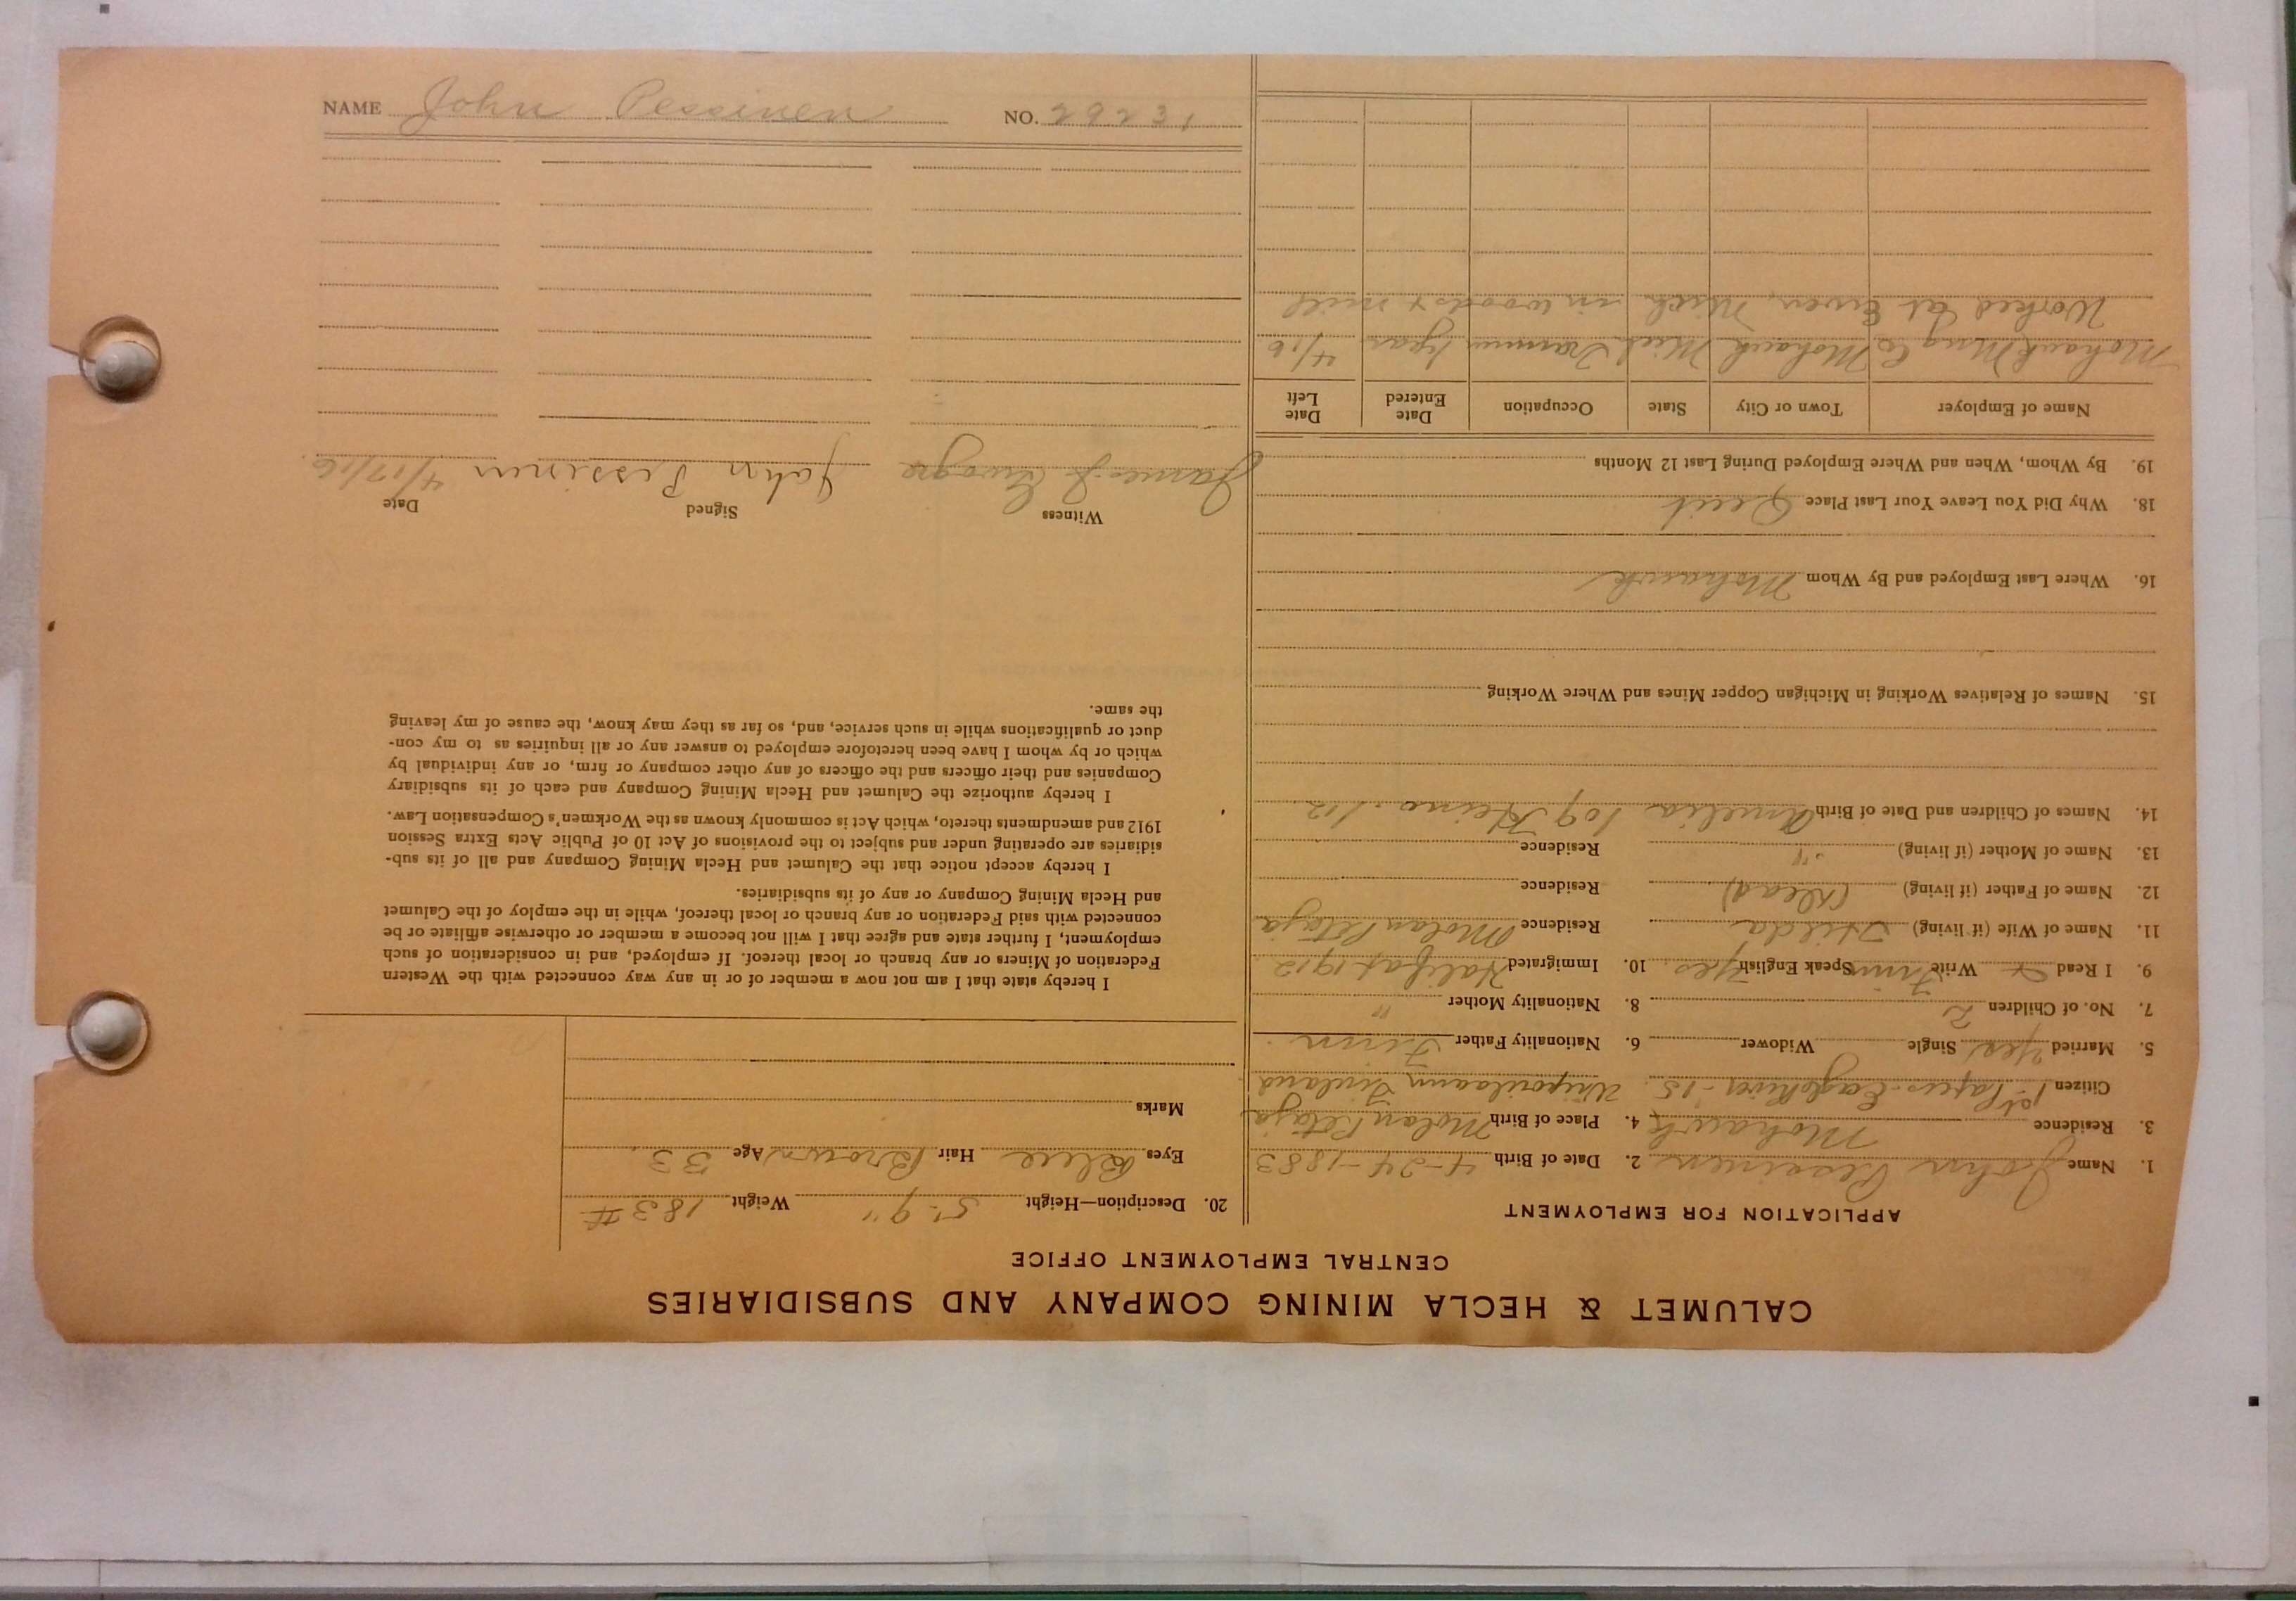 CALUMET & HECLA MINING COMPANY AND SUBSIDIARIES
CENTRAL EMPLOYMENT OFFICE
APPLICATION FOR EMPLOYMENT
1. Name John Pessinen 2. Date of Birth 4-24-1883
3. Residence Mohawk 4. Place of Birth
Citizen 1st Papers. Eagle River-15. Finland
5. Married Yes Single Widower 6. Nationality Father Finn
7. No. of Children 2 8. Nationality Mother "
9. I Read Write Finn Speak English Yes. 10. Immigrated Halifax 1912
11. Name of Wife (if living) Hilda Residence
12. Name of Father (if living) (Dead) Residence
13. Name of Mother (if living) " Residence
14. Names of Children and Date of Birth Amelia 109 Heino 112
15. Names of Relatives Working in Michigan Copper Mines and Where Working
16. Where Last Employed and By Whom Mohawk
18. Why Did You Leave Your Last Place Quit
19. By Whom, When and Where Employed During Last 12 Months
Name of Employer Town or City State Occupation Date Entered Date Left
Mohawk Mng Co Mohawk Mich Trammer 1 year 4/16
Worked at Ewen, Mich in woods + mill
20. Description—Height 5'-9" Weight 183 #
Eyes Blue Hair Brown Age 33
Marks
I hereby state that I am not now a member of or in any way connected with the Western
Federation of Miners or any branch or local thereof. If employed, and in consideration of such
employment, I further state and agree that I will not become a member or otherwise affiliate or be
connected with said Federation or any branch or local thereof, while in the employ of the Calumet
and Hecla Mining Company or any of its subsidiaries.
I hereby accept notice that the Calumet and Hecla Mining Company and all of its sub-
sidiaries are operating under and subject to the provisions of Act 10 of Public Acts Extra Session
1912 and amendments thereto, which Act is commonly known as the Workmen's Compensation Law.
I hereby authorize the Calumet and Hecla Mining Company and each of its subsidiary
Companies and their officers and the officers of any other company or firm, or any individual by
which or by whom I have been heretofore employed to answer any or all inquiries as to my con-
duct or qualifications while in such service, and, so far as they may know, the cause of my leaving
the same.
Witness Signed Date
James J. John Pessinen 4/17/16.
NAME John Pessinen NO. 29231